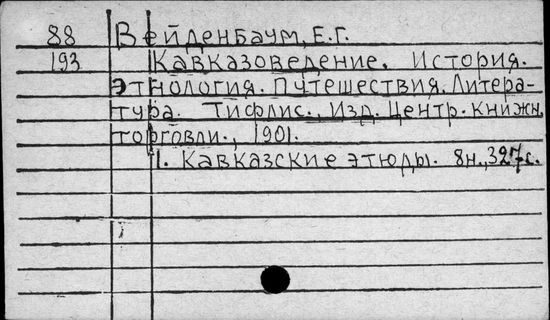 88 Вейденбаум, Е.Г.
193 Кавказоведение. История.
Этнология. Путешествия. Литера-
тура. Тифлис., Изд. Центр. книжн.
торговли., 1901.
1. Кавказские этюды. 8н., 327с.